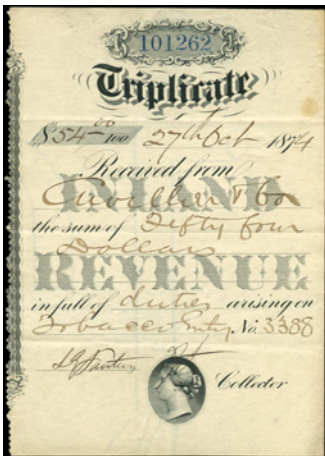 101262
Triplicate
$54 00/100 27th Oct 1874
Received from
Cuvillier & Co
the sum of Fifty four
Dollars
INLAND
REVENUE
in full of duties arising on
Tobacco Entry No. 3388
Collector